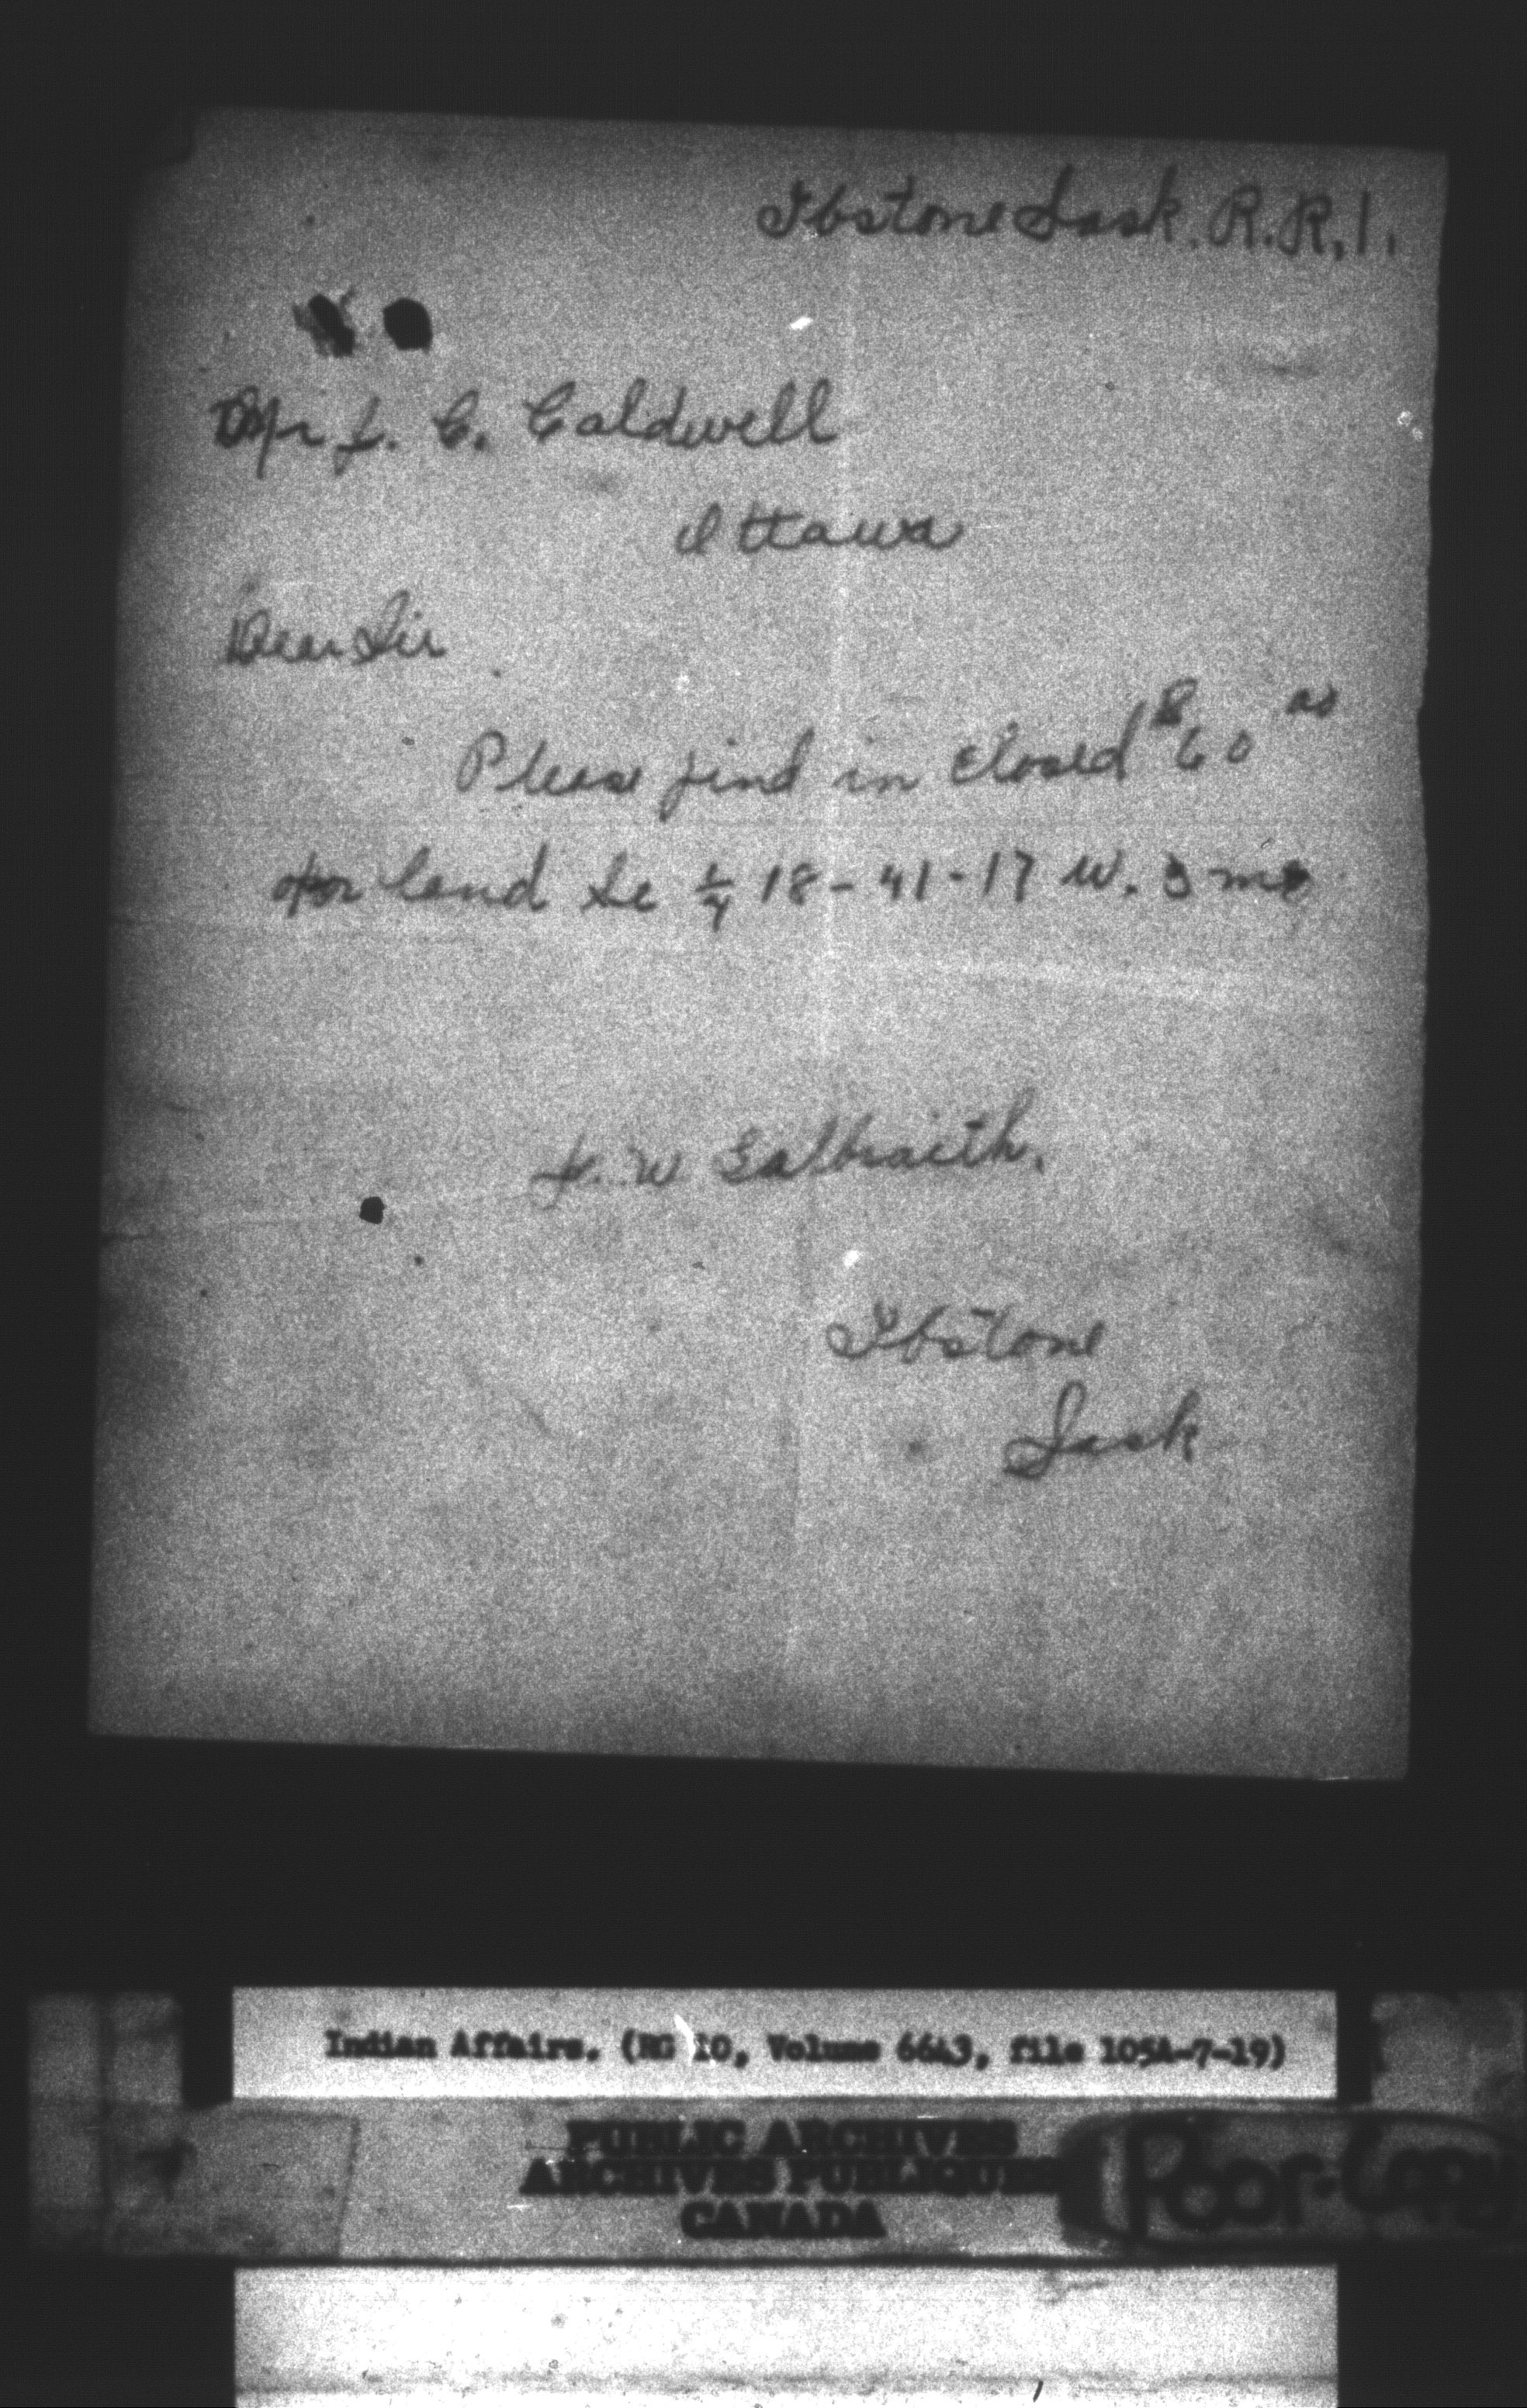 Ibstone Sask. R.R.1.
Mr J. C. Caldwell
Ottawa
Dear Sir
Please find in closed $60 00
for land Se 1/4 18-41-17 W. 3 me
J. W Galbraith.
Ibstone
Sask
Indian Affairs. (RG 10, Volume 6643, file 105A-7-19)
PUBLIC ARCHIVES
ARCHIVES PUBLIQUES
CANADA
Poor Copy